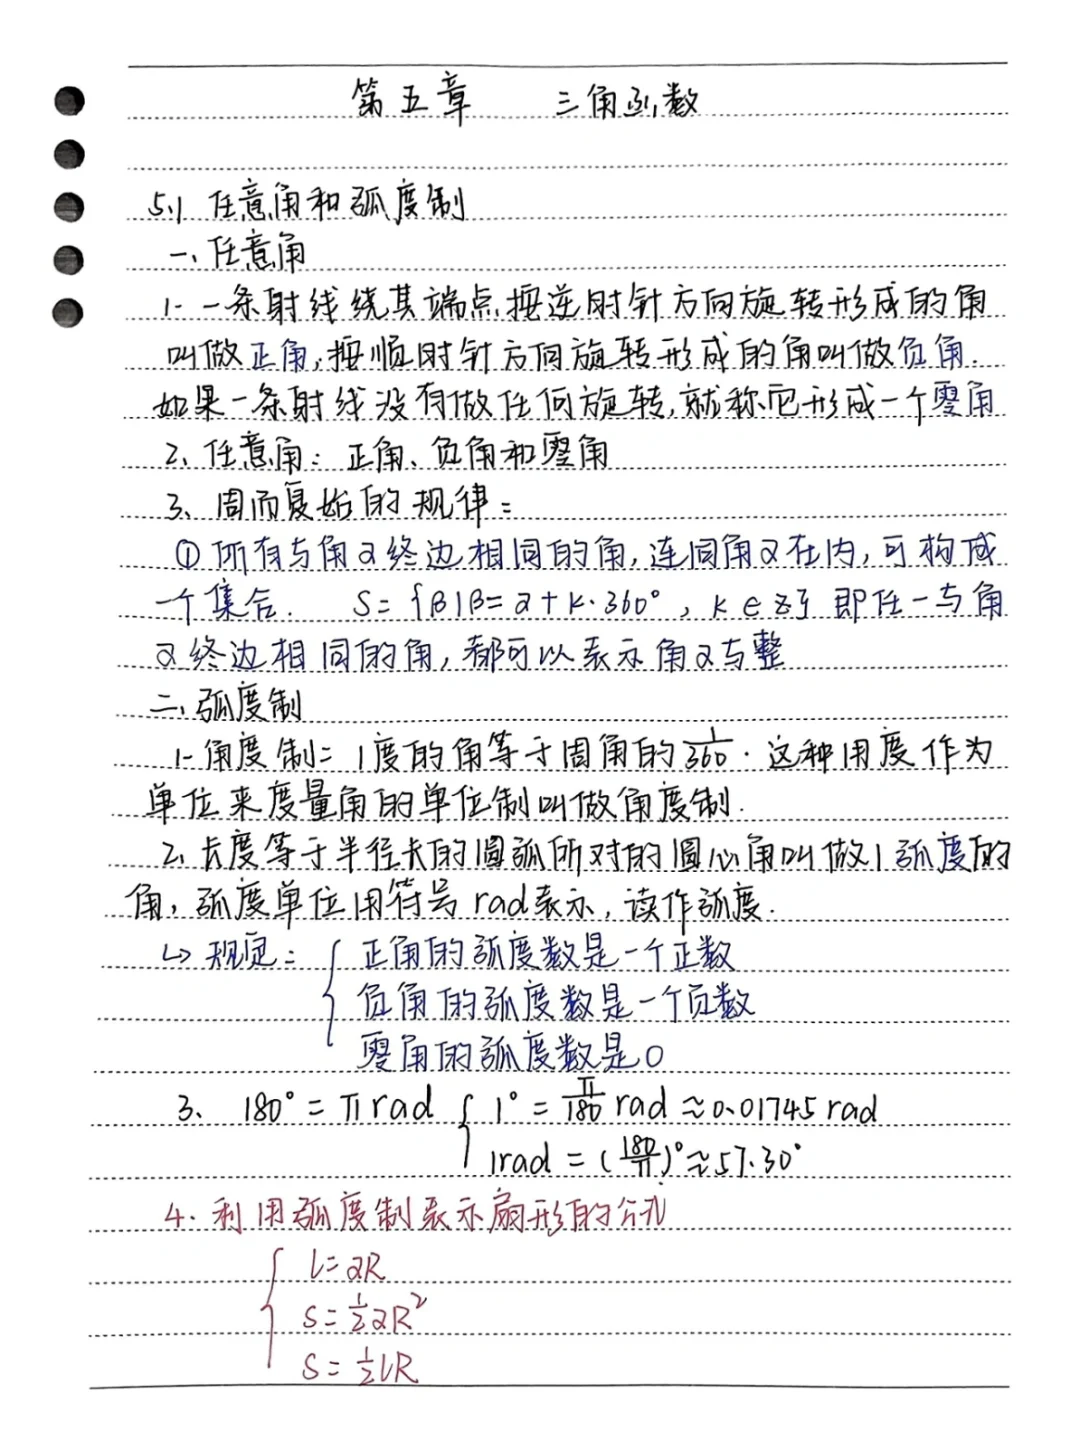 第五章 三角函数
5.1 任意角和弧度制
一、任意角
1. 一条射线绕其端点按逆时针方向旋转形成的角
叫做正角,按顺时针方向旋转形成的角叫做负角.
如果一条射线没有做任何旋转,就称它形成一个零角
2、任意角: 正角、负角和零角
3、周而复始的规律:
① 所有与角α终边相同的角,连同角α在内,可构成
一个集合. S={β|β=α+k·360°,k∈Z} 即任一与角
α终边相同的角,都可以表示角α与整
二、弧度制
1. 角度制: 1度的角等于周角的1/360. 这种用度作为
单位来度量角的单位制叫做角度制.
2. 长度等于半径长的圆弧所对的圆心角叫做1弧度的
角,弧度单位用符号rad表示,读作弧度.
↳ 规定: { 正角的弧度数是一个正数
负角的弧度数是一个负数
零角的弧度数是0
3、 180°=π rad { 1°=π/180 rad≈0.01745 rad
1rad=(180/π)°≈57.30°
4. 利用弧度制表示扇形的公式
{ l=αR
S=1/2αR²
S=1/2lR